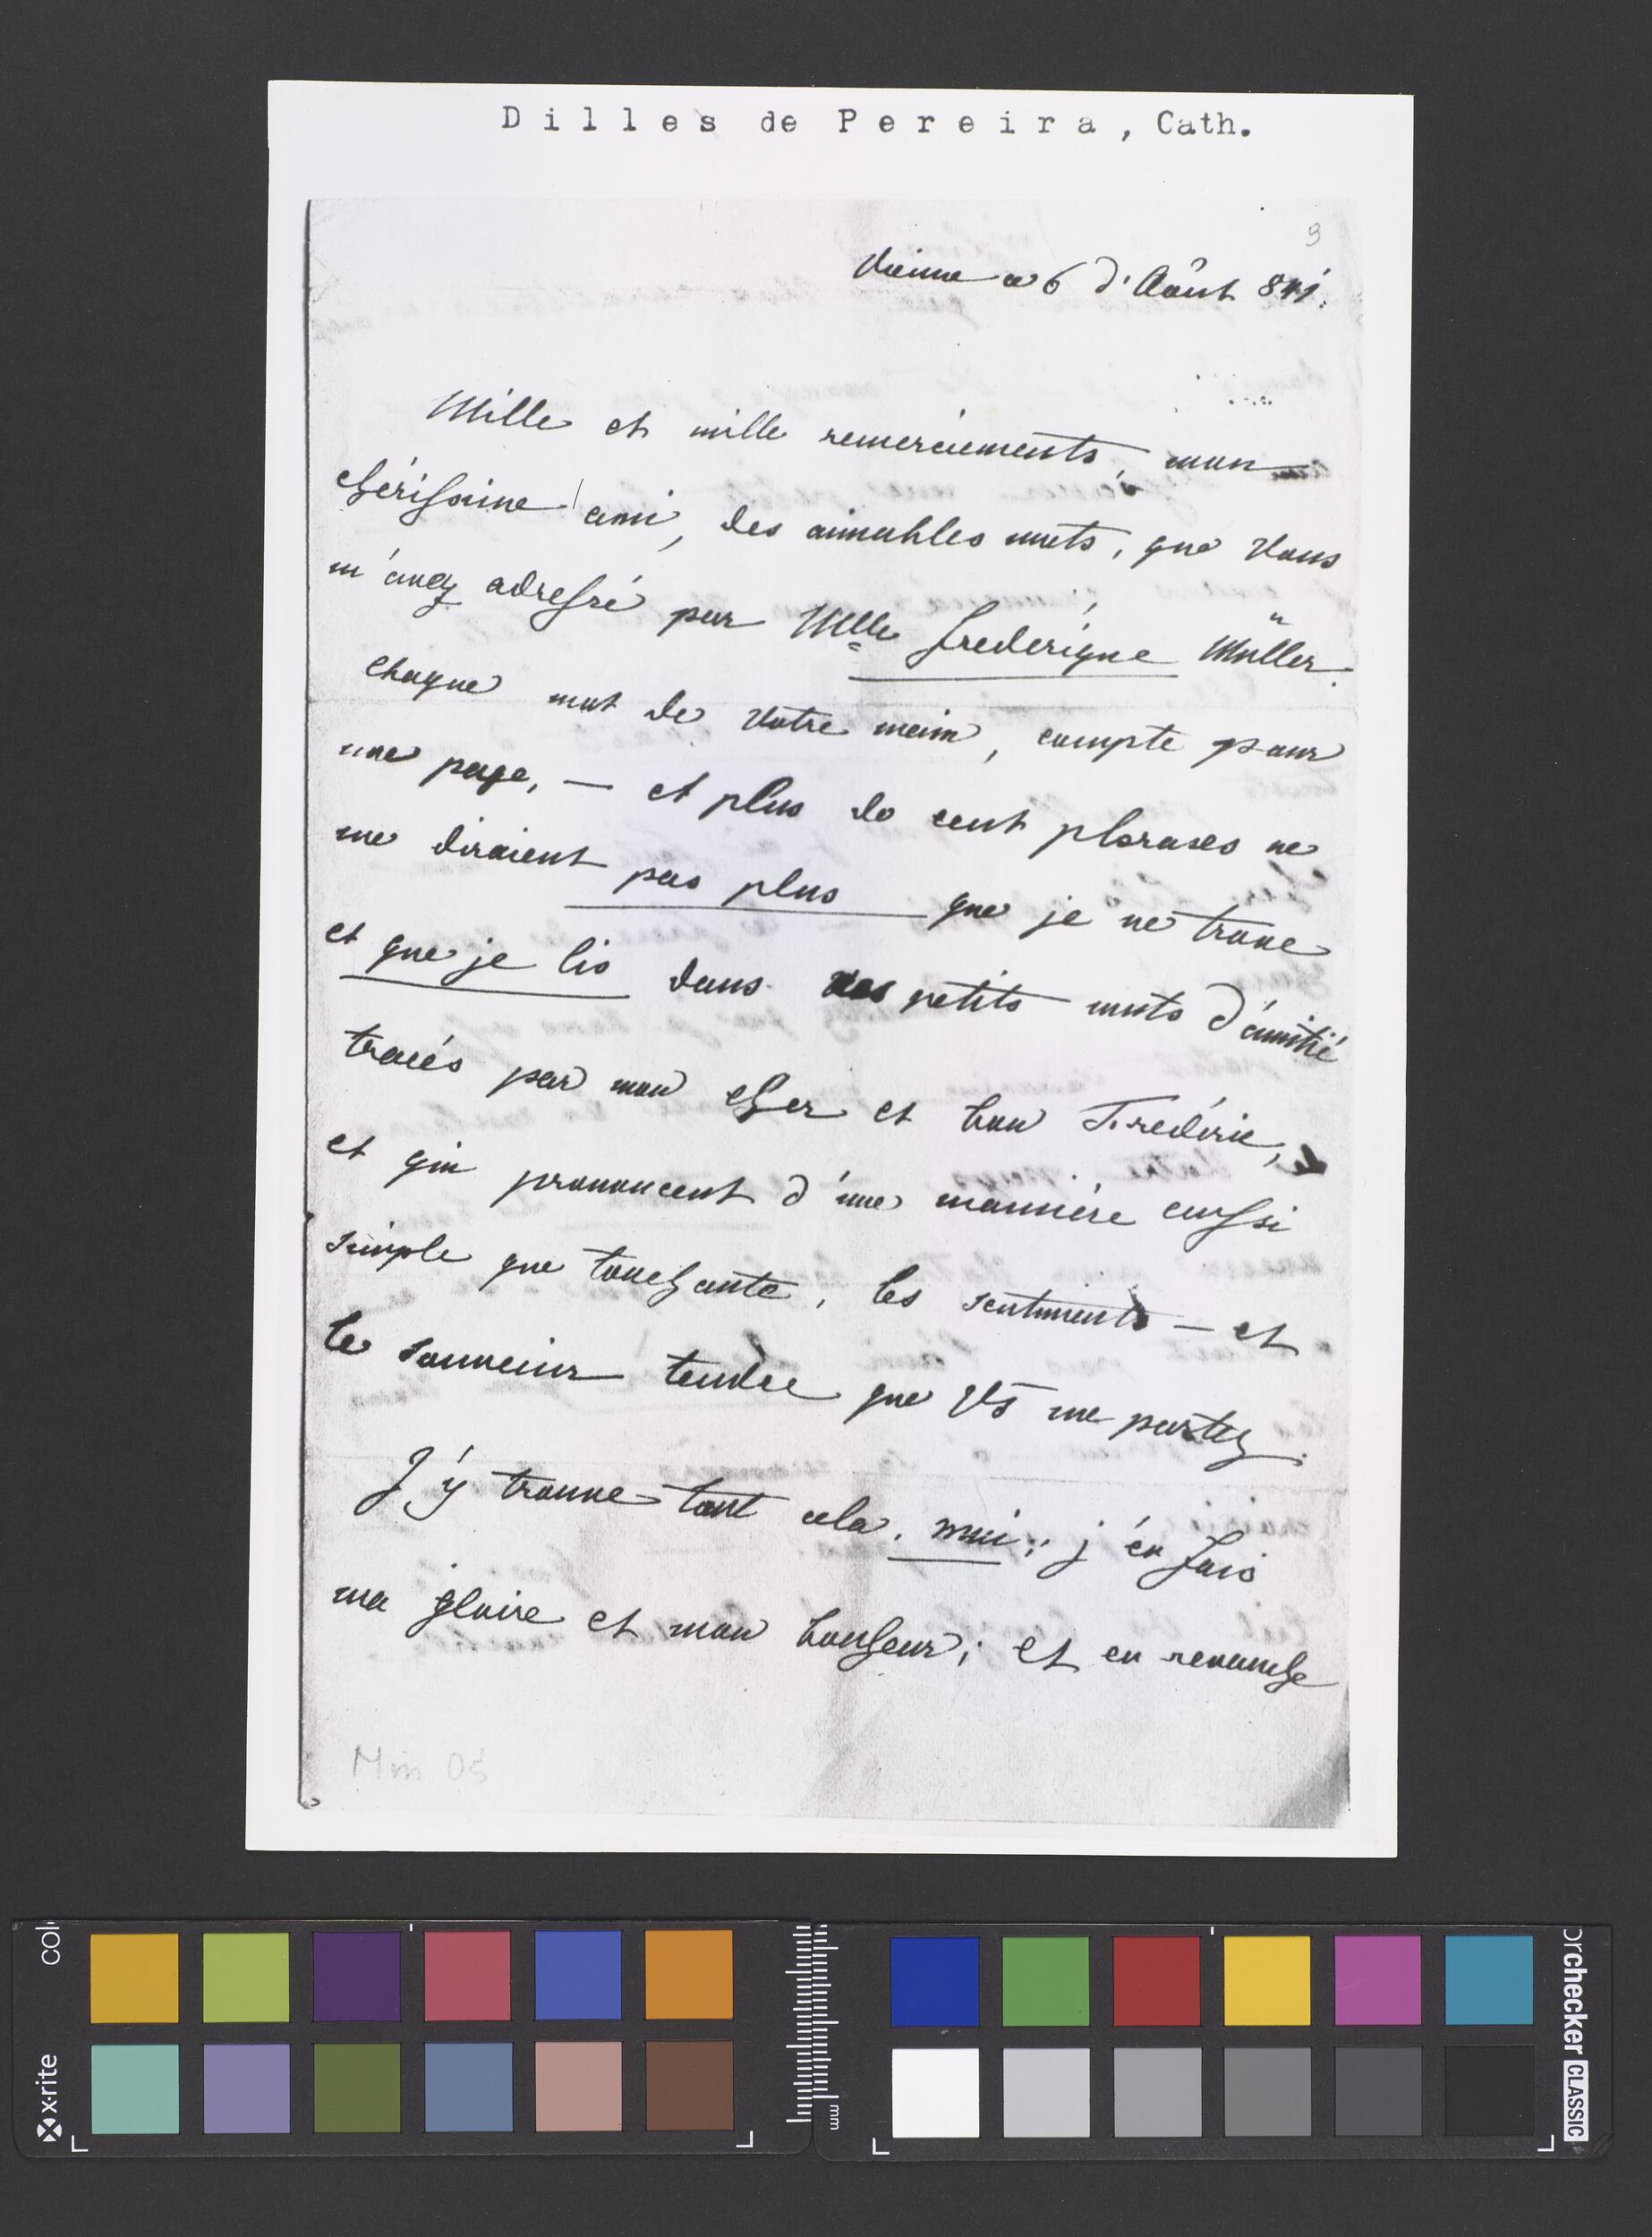 Dilles de Pereira, Cath.
9
Vienne ce 6 d'Août 841.
Mille et mille remerciements, mon
chérissime ami, des aimables mots, que Vous
m'avez adressé par Mlle Frederique Müller.
chaque mot de Votre main, compte pour
une page, — et plus de cent phrases ne
me diraient pas plus que je ne trouve
et que je lis dans petits mots d'amitié
tracés par mon cher et bon Frédéric,
et qui prononcent d'une mannière aussi
simple que touchante, les sentiments — et
le souvenir tendre que Vs me portez.
J'y trouve tout cela, moi; j'en fais
ma gloire et mon bonheur; et en revanche
Mm 05
x-rite
mm
orchecker CLASSIC